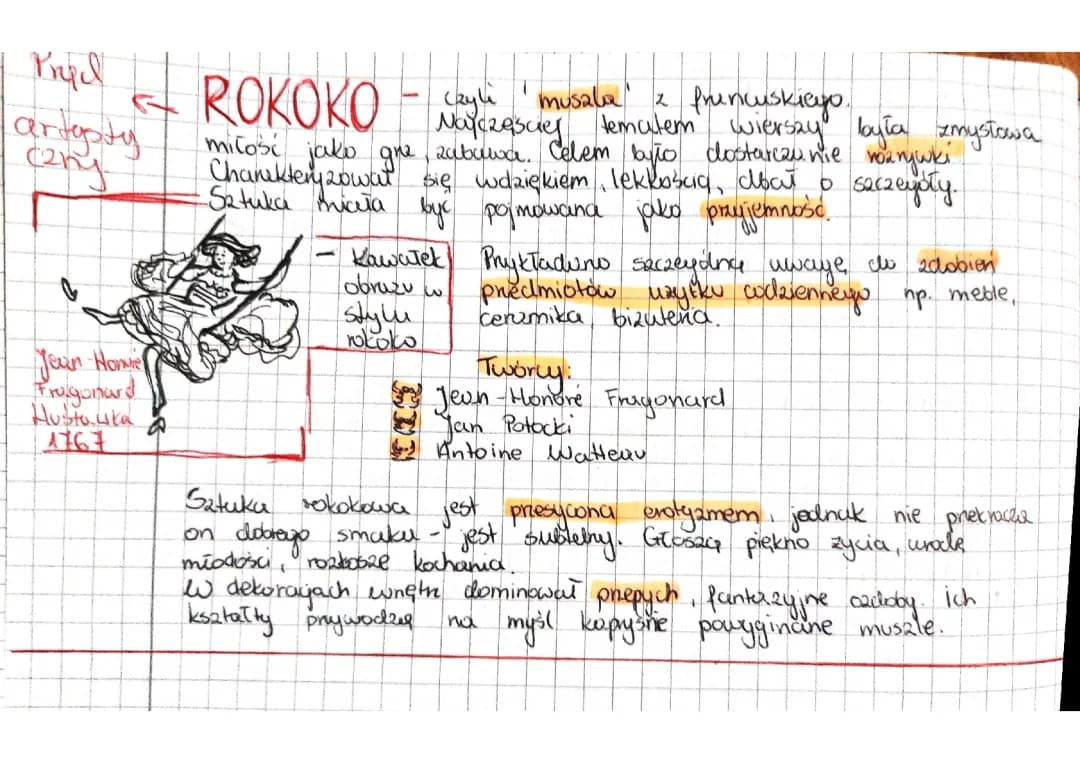 Prąd
artysty
czny
← ROKOKO - czyli 'muszla' z francuskiego.
Najczęściej tematem wierszy była zmysłowa
miłość jako gra, zabawa. Celem było dostarczanie rozrywki
Charakteryzował się wdziękiem, lekkością, dbał o szczegóły.
Sztuka miała być pojmowana jako przyjemność.
- Kawałek
obrazu w
stylu
rokoko
Przykładano szczególną uwagę do zdobień
przedmiotów użytku codziennego np. meble,
ceramika, biżuteria.
Jean-Honoré
Fragonard
Huśtawka
1767
Twórcy:
Jean-Honoré Fragonard
Jan Potocki
Antoine Watteau
Sztuka rokokowa jest przesycona erotyzmem, jednak nie przekracza
on dobrego smaku - jest subtelny. Głoszą piękno życia, urodę
młodości, rozkosze kochania.
W dekoracjach wnętrz dominował przepych, fantazyjne ozdoby. ich
kształty przywodzą na myśl kapryśne powyginane muszle.